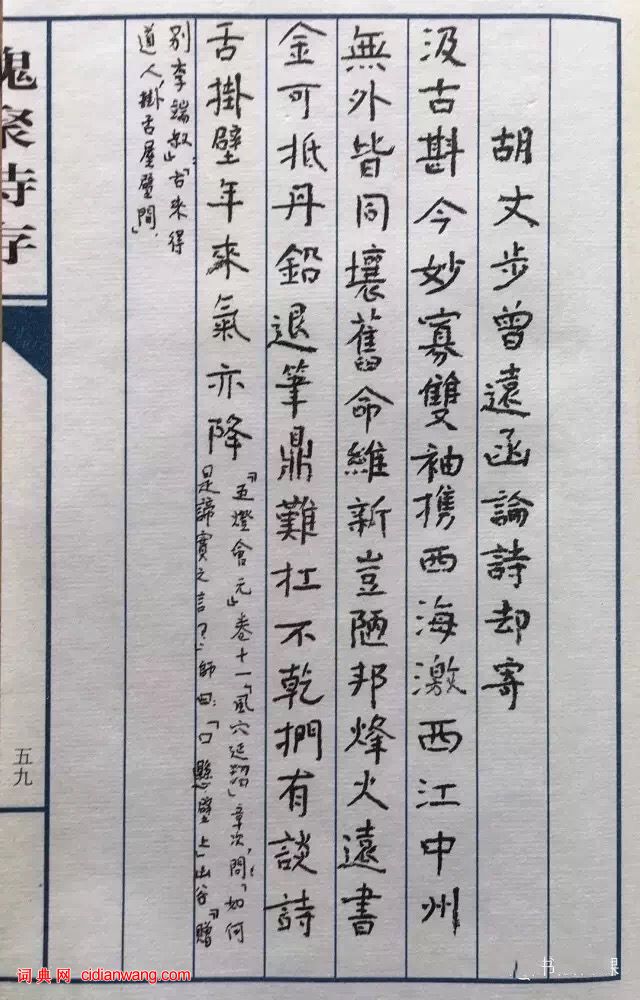 胡丈步曾遠函論詩却寄
汲古斟今妙寡雙袖携西海激西江中州
無外皆同壤舊命維新豈陋邦烽火遠書
金可抵丹鉛退筆鼎難扛不乾捫有談詩
舌掛壁年來氣亦降
『五燈會元』卷十一『風穴延詔』章次,問「如何
是諦實之言?」師曰:「口懸壁上」山谷『贈
別李端叔』「古來得
道人,掛舌屋壁間」
槐聚詩存
五九
词典网 cidianwang.com
书 課